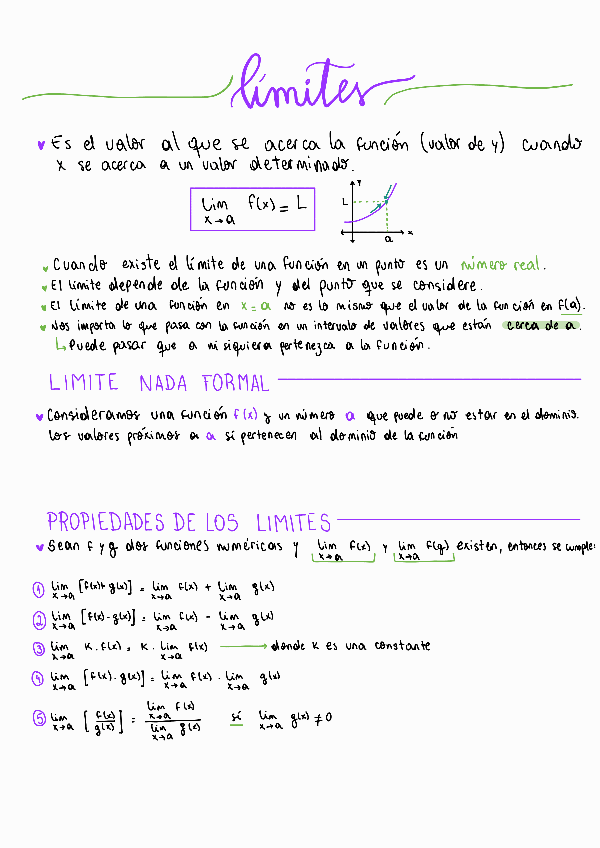 límites
Es el valor al que se acerca la función (valor de y) cuando
x se acerca a un valor determinado.
lim f(x) = L
x→a
y
L
a
x
Cuando existe el límite de una función en un punto es un número real.
El límite depende de la función y del punto que se considere.
El límite de una función en x = a no es lo mismo que el valor de la función en f(a).
Nos importa lo que pasa con la función en un intervalo de valores que están cerca de a.
↳ Puede pasar que a ni siquiera pertenezca a la función.
LIMITE NADA FORMAL
Consideramos una función f(x) y un número a que puede o no estar en el dominio.
Los valores próximos a a sí pertenecen al dominio de la función
PROPIEDADES DE LOS LIMITES
Sean f y g dos funciones numéricas y lim f(x) y lim f(g) existen, entonces se cumple:
x→a x→a
1 lim [f(x)+ g(x)] = lim f(x) + lim g(x)
x→a x→a x→a
2 lim [f(x) - g(x)] = lim f(x) - lim g(x)
x→a x→a x→a
3 lim K. f(x) = K. lim f(x) → donde K es una constante
x→a x→a
4 lim [f(x) . g(x)] = lim f(x) . lim g(x)
x→a x→a x→a
5 lim [f(x)/g(x)] = lim f(x) / lim g(x) sí lim g(x) ≠ 0
x→a x→a x→a x→a